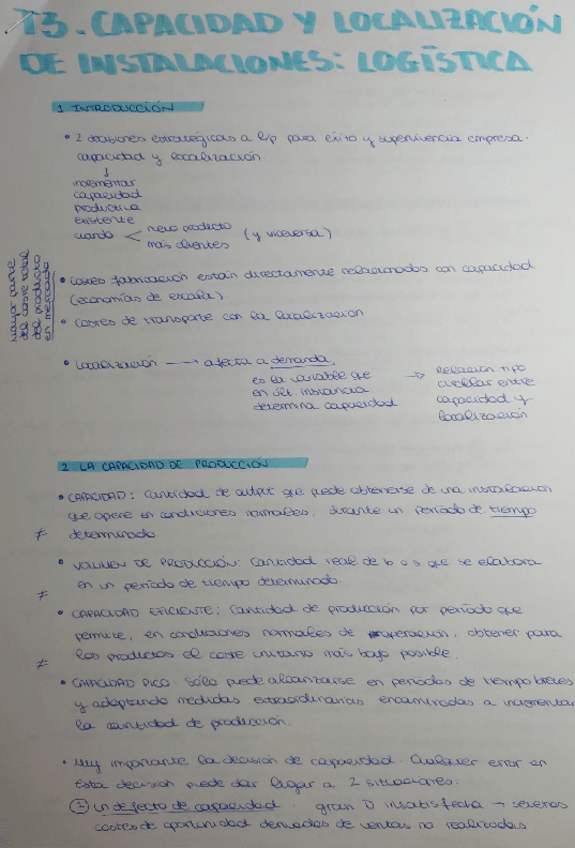 T3. CAPACIDAD Y LOCALIZACIÓN
DE INSTALACIONES: LOGÍSTICA
1 INTRODUCCIÓN
• 2 decisiones estratégicas a l/p para éxito y supervivencia empresa.
capacidad y localización
↓
incrementar
capacidad
productiva
existente
cuando < nuevo producto
más clientes (y viceversa)
Mayor parte
del coste total
del producto
en mercado
• Costes fabricación están directamente relacionados con capacidad
(economías de escala)
• Costes de transporte con la localización
• Localización → afecta a demanda,
es la variable que
en últ. instancia
determina capacidad
→ Relación tipo
circular entre
capacidad y
localización
2 LA CAPACIDAD DE PRODUCCIÓN
• CAPACIDAD: Cantidad de output que puede obtenerse de una instalación
que opere en condiciones normales, durante un período de tiempo
≠ determinado.
• VOLUMEN DE PRODUCCIÓN: Cantidad real de b o s que se elabora
en un período de tiempo determinado.
≠
• CAPACIDAD EFICIENTE: Cantidad de producción por período que
permite, en condiciones normales de operación, obtener para
los productos el coste unitario más bajo posible.
≠
• CAPACIDAD PICO: Sólo puede alcanzarse en períodos de tiempo breves
y adoptando medidas extraordinarias encaminadas a incrementar
la cantidad de producción.
• Muy importante la decisión de capacidad. Cualquier error en
esta decisión puede dar lugar a 2 situaciones:
① Un defecto de capacidad. gran D insatisfecha → severos
costes de oportunidad derivados de ventas no realizadas